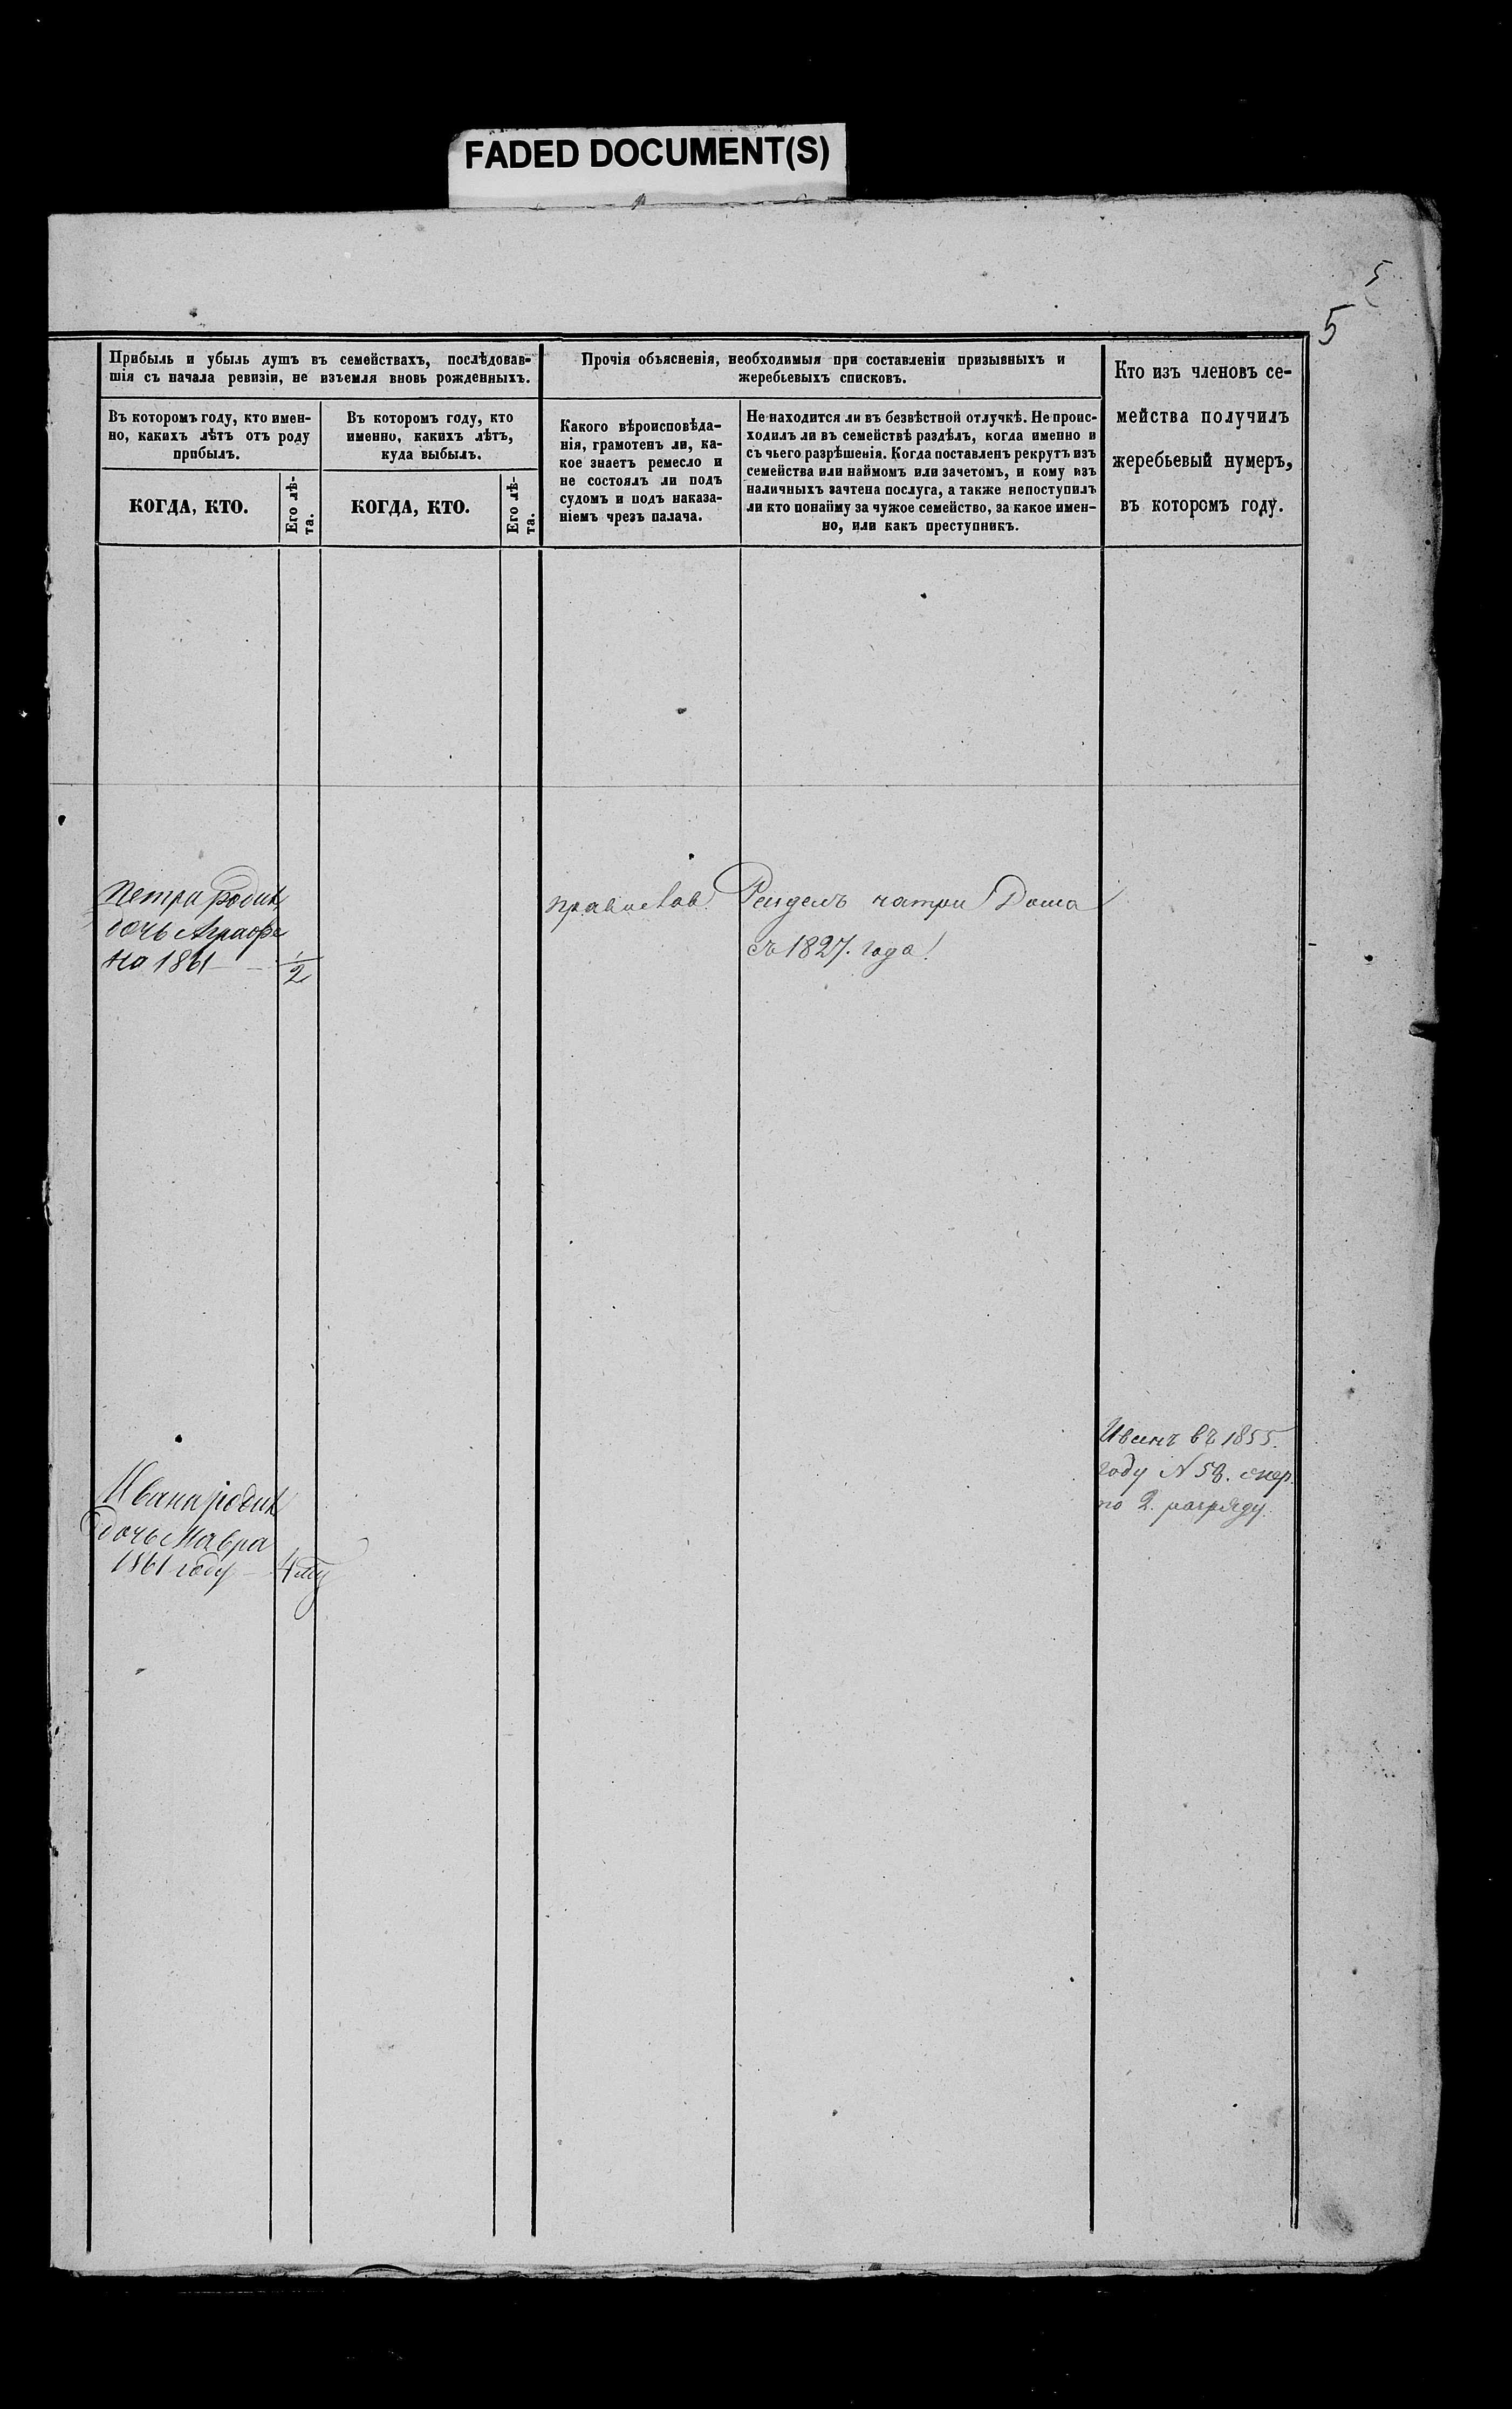 FADED DOCUMENT(S)
5
5
Прибыль и убыль душъ въ семействахъ, послѣдовав-
шія съ начала ревизіи, не изъемля вновь рожденныхъ.
Въ которомъ году, кто имен-
но, какихъ лѣтъ отъ роду
прибылъ.
КОГДА, КТО.
Его лѣ-
та.
Въ которомъ году, кто
именно, какихъ лѣтъ,
куда выбылъ.
КОГДА, КТО.
Его лѣ-
та.
Прочія объясненія, необходимыя при составленіи призывныхъ и
жеребьевыхъ списковъ.
Какого вѣроисповѣда-
нія, грамотенъ ли, ка-
кое знаетъ ремесло и
не состоялъ ли подъ
судомъ и подъ наказа-
ніемъ чрезъ палача.
Не находится ли въ безвѣстной отлучкѣ. Не проис-
ходилъ ли въ семействѣ раздѣлъ, когда именно и
съ чьего разрѣшенія. Когда поставленъ рекрутъ изъ
семейства или наймомъ или зачетомъ, и кому изъ
наличныхъ зачтена послуга, а также непоступилъ
ли кто понайму за чужое семейство, за какое имен-
но, или какъ преступникъ.
Кто изъ членовъ се-
мейства получилъ
жеребьевый нумеръ,
въ которомъ году.
Петра родил
дочь Аграфе
на 1861 1/2
православ.
Раздел натри Дома
съ 1827. года
Иванъ въ 1855.
году N 58. очер.
по 2. разряду.
Ивана родил
дочь Мавра
1861 году 4